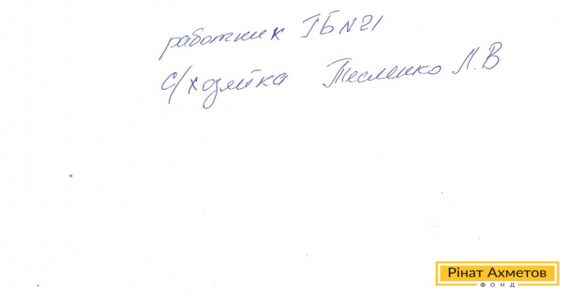 работник ГБ№21
с/хозяйка Тесленко Л.В
Рінат Ахметов
ФОНД